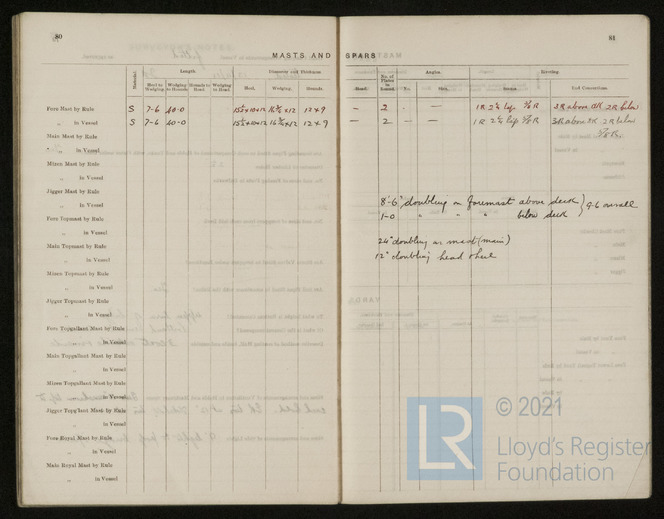 80
81
MASTS AND SPARS
Material.
Length.
Diameter and Thickness
No. of Plates in Round.
Angles.
Riveting.
Heel to Wedging.
Wedging to Hounds
Hounds to Head.
Wedging to Head.
Heel.
Wedging.
Hounds.
Head.
No.
Size.
Seams.
End Connections.
Fore Mast by Rule S 7-6 40-0 12 x 9 - 2 - — 1R 2½ lap 5/8 R 3R above dk 2R below
„ in Vessel S 7-6 40-0 12 x 9 — 2 — — 1R 2½ lap 5/8 R 3R above dk 2R below
5/8 R.
Main Mast by Rule
„ in Vessel
Mizen Mast by Rule
„ in Vessel
Jigger Mast by Rule
„ in Vessel
8'-6" doubling on foremast above deck } 9-6 overall
1-0 „ „ „ below deck
Fore Topmast by Rule
„ in Vessel
Main Topmast by Rule
24" doubling on mast (main)
„ in Vessel
12" doubling head & heel
Mizen Topmast by Rule
„ in Vessel
Jigger Topmast by Rule
„ in Vessel
Fore Topgallant Mast by Rule
„ in Vessel
Main Topgallant Mast by Rule
„ in Vessel
Mizen Topgallant Mast by Rule
„ in Vessel
Jigger Topg'lant Mast by Rule
„ in Vessel
Fore Royal Mast by Rule
„ in Vessel
Main Royal Mast by Rule
„ in Vessel
LR
© 2021
Lloyd's Register
Foundation